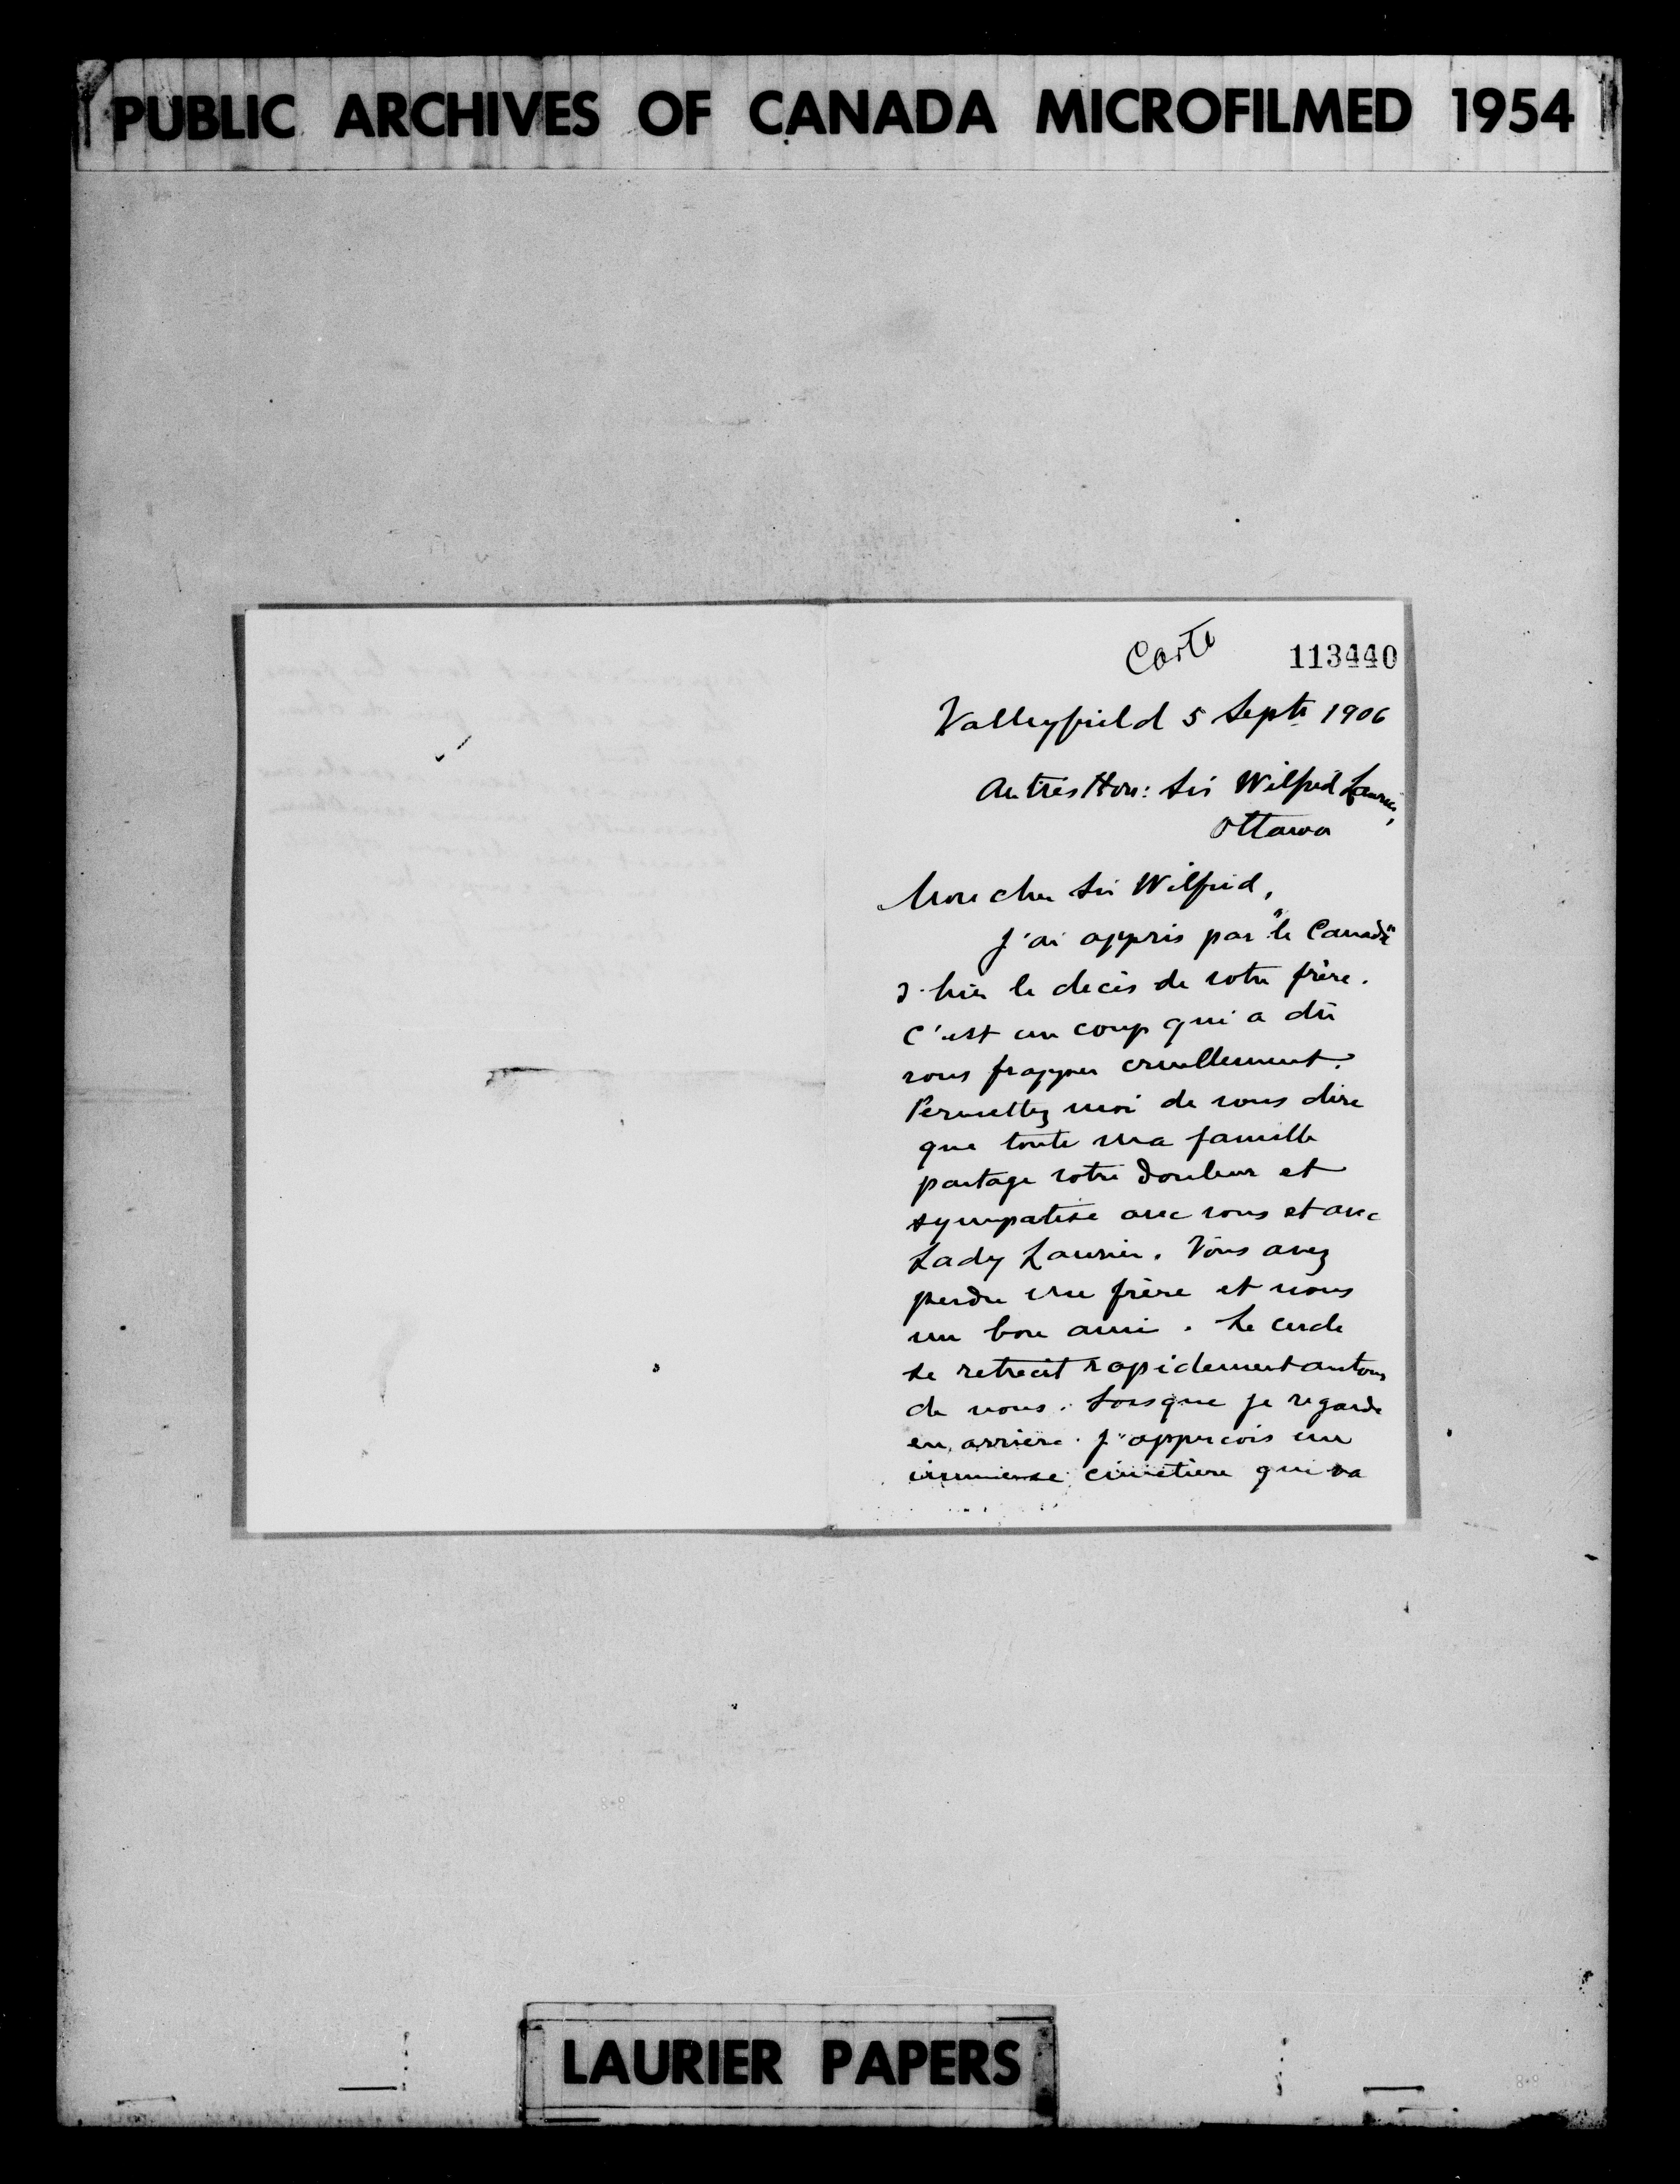 PUBLIC ARCHIVES OF CANADA MICROFILMED 1954
Carte
113440
Valleyfield 5 Septe 1906
Au très Hon: Sir Wilfrid Laurier,
Ottawa
Mon cher Sir Wilfrid,
J'ai appris par "le Canada"
d'hier le décès de votre frère.
C'est un coup qui a dû
vous frapper cruellement.
Permettez moi de vous dire
que toute ma famille
partage votre douleur et
sympatise avec vous et avec
Lady Laurier. Vous avez
perdu un frère et nous
un bon ami. Le cercle
se retrecit rapidement autour
de nous. Lorsque je regarde
en arrière j'apperçois un
immense cimetière qui va
LAURIER PAPERS